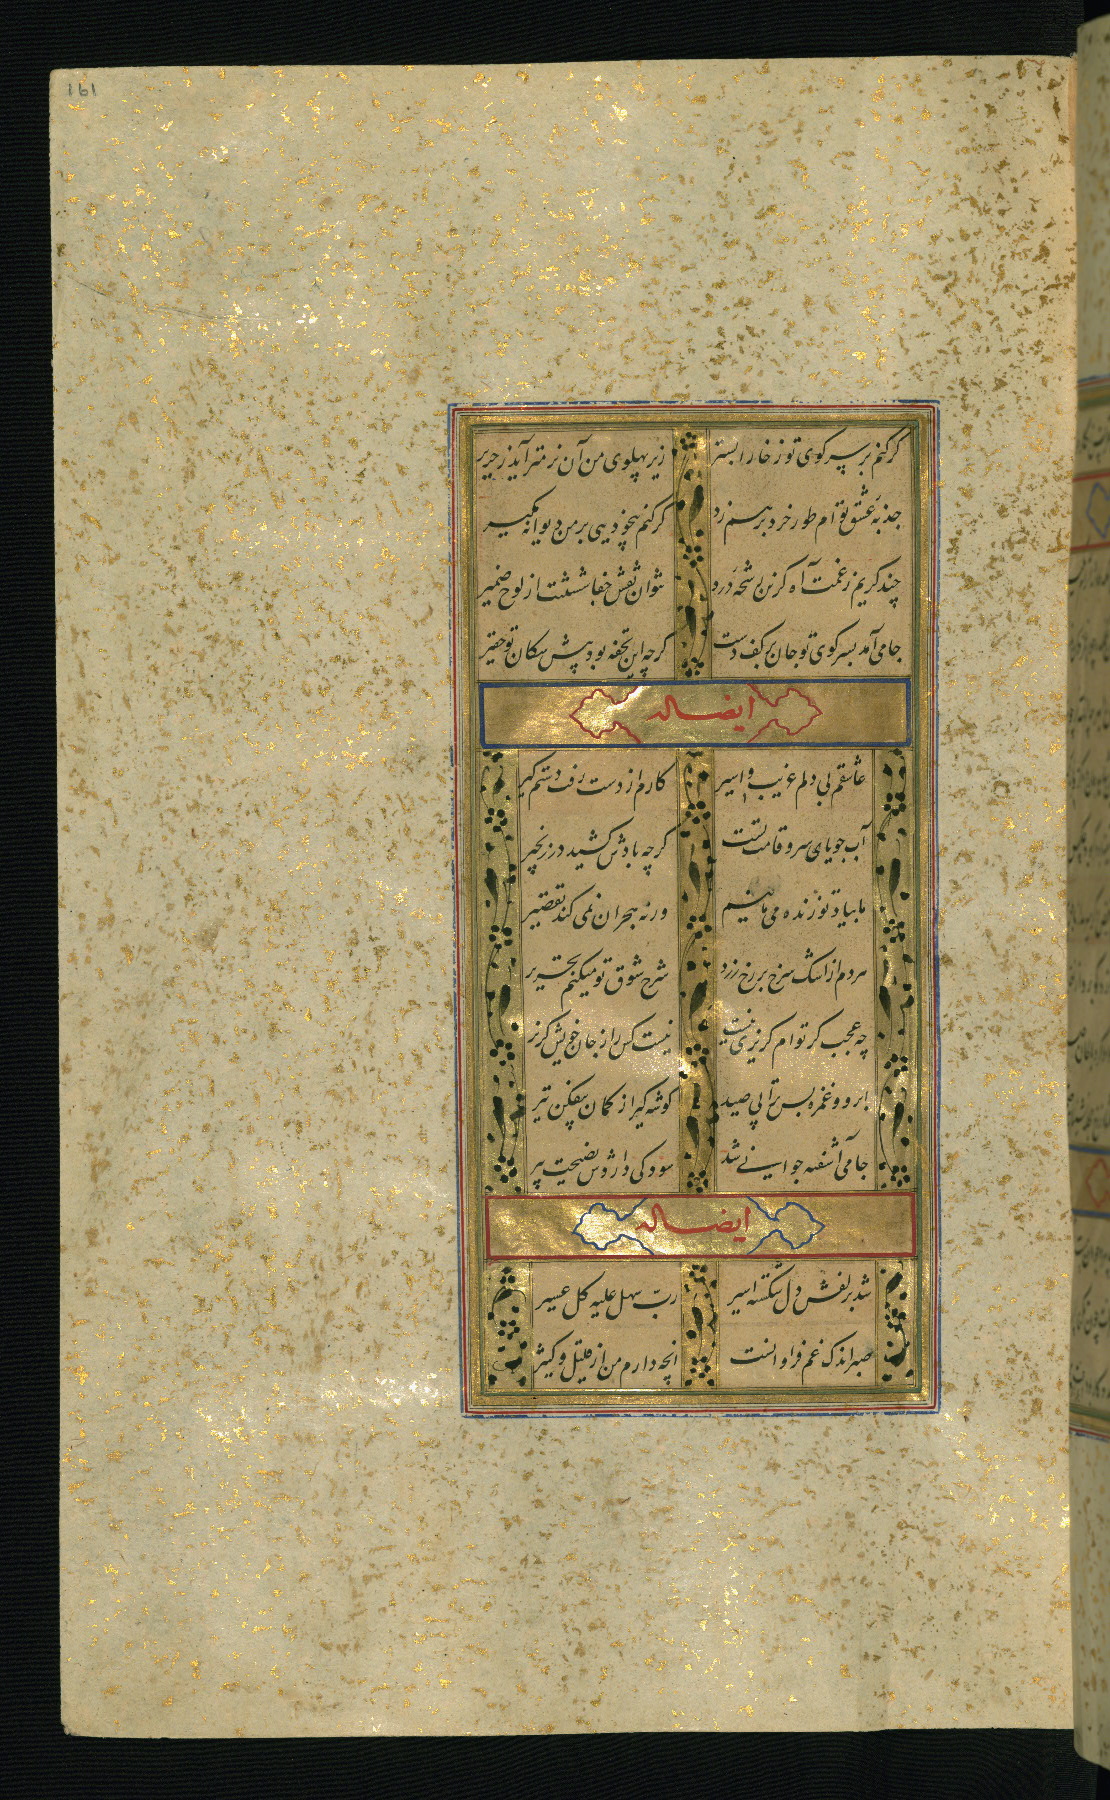 ۱۶۱
کر کنم بر سر کوی تو ز خارا بستر زیر پهلوی من آن نرمتر آید ز حریر
جذبه عشق توام طور خرد بر هم زد کر کنم بیخودیی بر من دیوانه مکیر
چند کریم ز غمت آه کزین رشحه درد نتوان نقش خفا شستن از لوح ضمیر
جامی آمد بسر کوی تو جان بر کف دست کرچه این تحفه بود پیش سکان تو حقیر
ایضا له
عاشقم بی دلم غریب و اسیر کارم از دست رفت دستم کیر
آب جویای سرو قامت تست کرچه بادش کشید در زنجیر
ما بیاد تو زنده می مانیم ورنه هجران نمی کند تقصیر
مردم از اشک سرخ بر رخ زرد شرح شوق تو میکنم تحریر
چه عجب کر توام کریزی نیست نیست کس را ز جان خویش کزیر
ابرو و غمزه بس ترا پی صید کوشه کیر از کمان بیفکن تیر
جامی آشفته جوانی شد سود کی داردش نصیحت پیر
ایضا له
شد بزلفش دل شکسته اسیر رب سهل علیه کل عسیر
صبر اندک غم فراوانست انچه دارم من از قلیل و کثیر